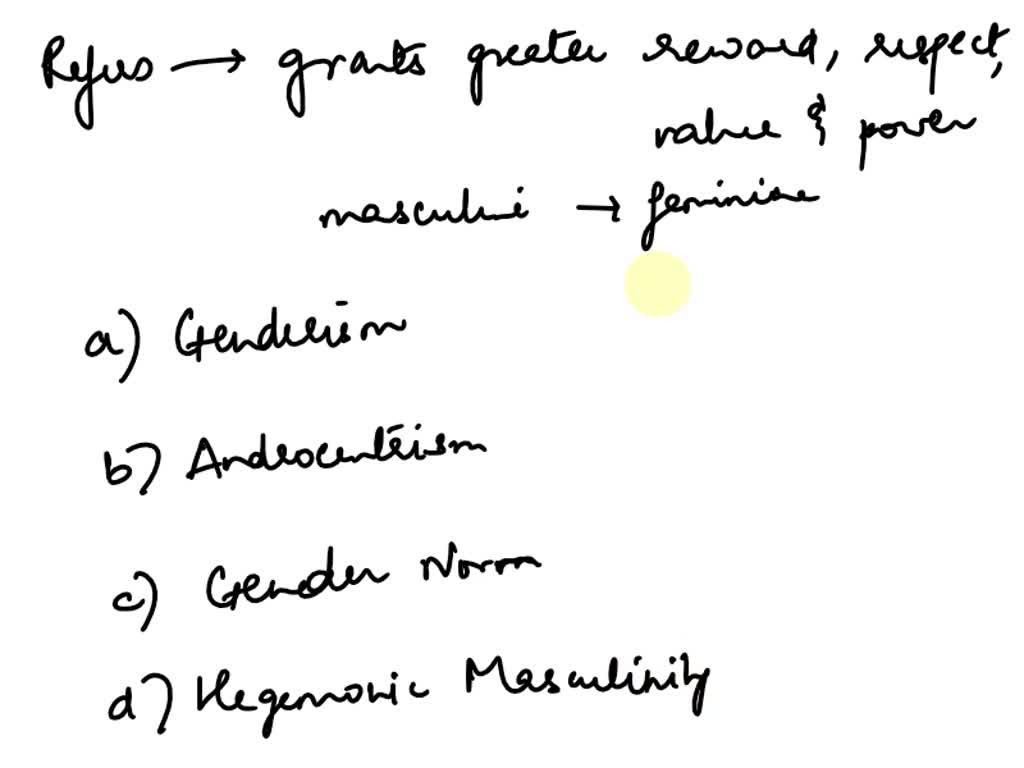 Refers → grants greater reward, respect,
value & power
masculini → feminine
a) Genderism
b) Androcentrism
c) Gender Norm
d) Hegemonic Masculinity